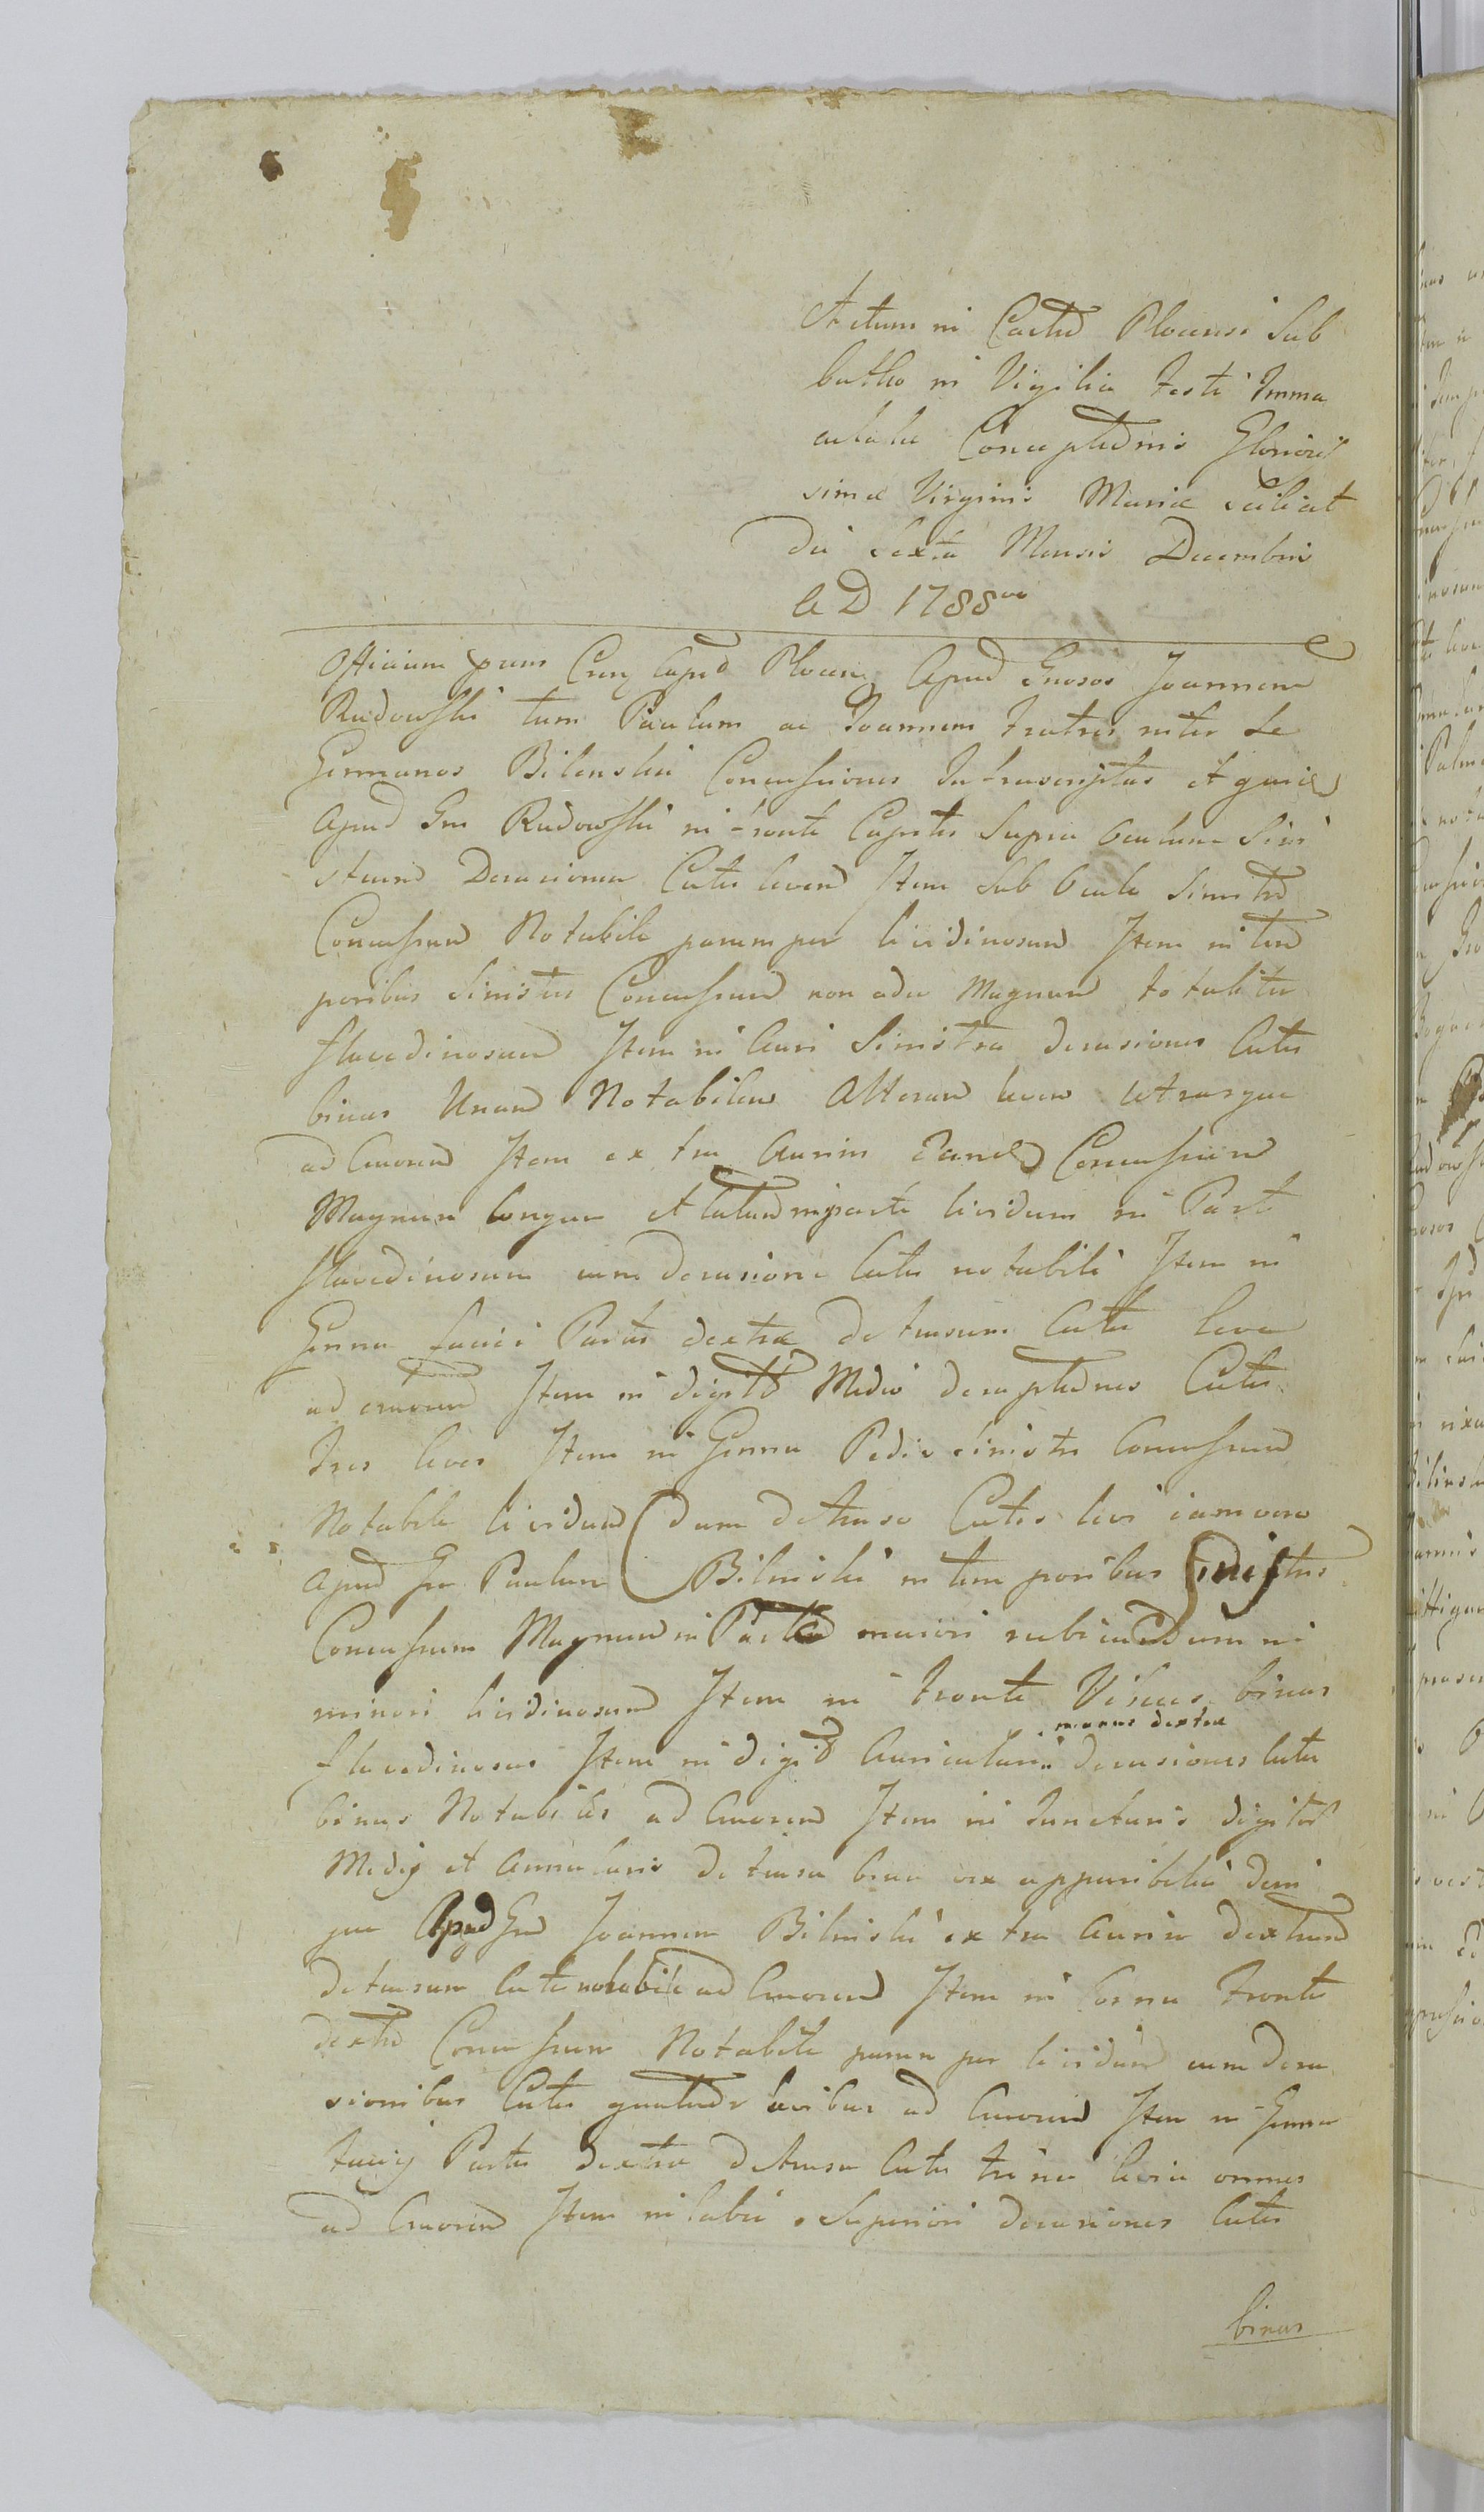 Actum in Castro Plocensi Sab
batho in Vigilia Festi Imma
culatæ Conceptionis Glorios
simæ Virginis Mariæ scilicet
die Sexta Mensis Decembris
A D 1788vo
Officium Capit Plocen Apud Gnosos Joannem
Rudowski tum Paulum ac Joannem Fratres inter Se
Germanos Bilinskie Concussiones Infrascriptas et quid
Apud Gm Rudowski in fronte Capitis Supra Oculum Sini
strum Decusionem Cutis levem Item Sub Oculo Sinistro
Concussum Notabile parumper lividinosum Item in tem
poribus Sinistris Concussum non adeo Magnum totaliter
flavedinosum Item in Auri Sinistra decusiones Cutis
binas Unam Notabilem Alteram levem utrasque
ad Cruorem Item extra Aurim Eand Concussum
Magnum longum et latum in parte lividum in Parte
flavedinosum cum decusione Cutis notabili Item in
Genna faciei Partis dextræ detrusum Cutis leve
ad cruorem Item in digito Medio decuptiones Cutis
Tres leves Item in Gennu Pedis Sinistri Concussum
Notabile lividum dum detruso Cutis levi iam vero
Apud Gm Paulum Bilinski in temporibus Sinistris
Concussum Magnum in Parte maiori rubicundum in
minori lividinosum Item in Fronte Vibices binas
manus dextræ
flavedinosas Item in digito Auricularii decusiones Cutis
binas Notabiles ad Cruorem Item in Juncturis digitor
Medij et Annularis detrusa bina vix apparibilia deni
que Apud Gm Joannem Bilinski extra Aurim dextram
detrusum Cutis notabile ad Cruorem Item in Cornu Frontis
dextro Concussum Notabile parumper lividum cum decu
sionibus Cutis quatuor levibus ad Cruorem Item in Genna
Faciej Partis dextræ detrusa Cutis trina levia omnes
ad Cruorem Item in labio Superiori decusiones Cutis
binas